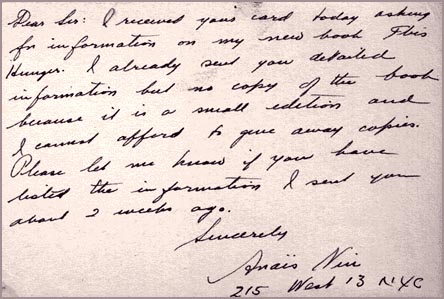 Dear Sir: I received your card today asking
for information on my new book This
Hunger. I already sent you detailed
information but no copy of the book
because it is a small edition and
I cannot afford to give away copies.
Please let me know if you have
listed the information I sent you
about 2 weeks ago.
Sincerely
Anaïs Nin
215 West 13 NYC